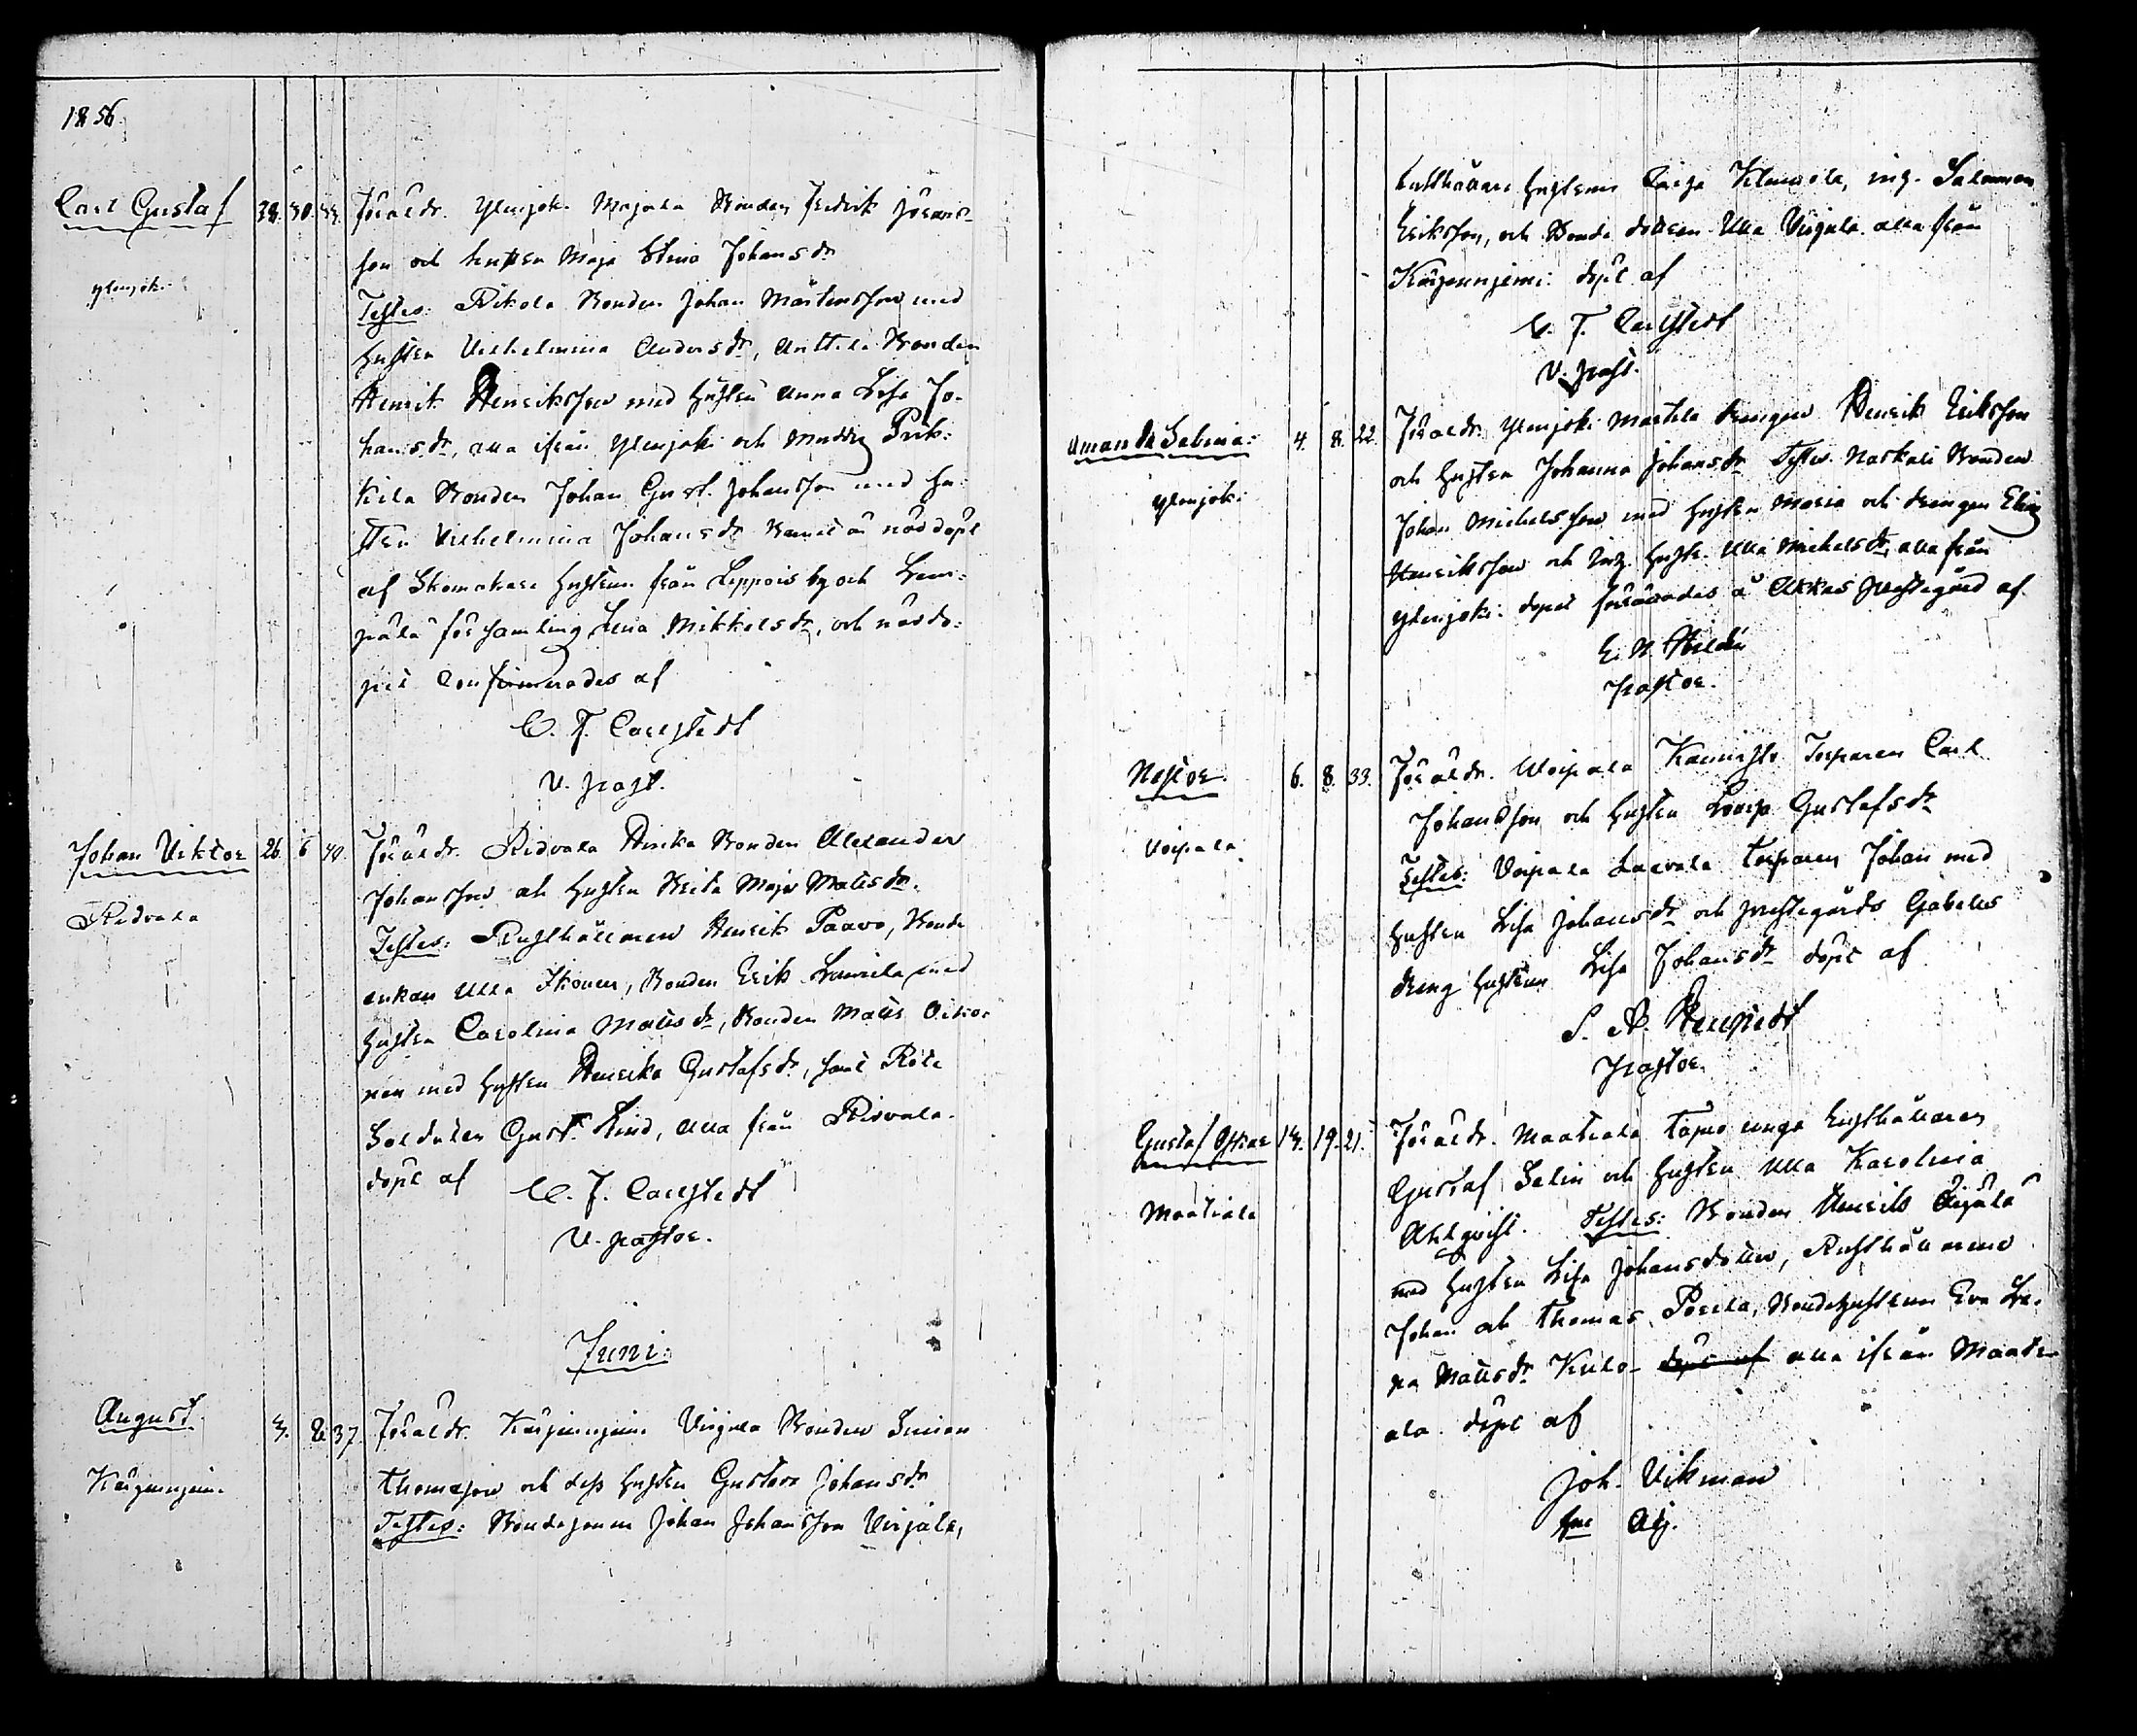 1856
Carl Gustaf 28. 30. 33. Föräldr. Ylenjoki Majala Bonden Fredrik Johans-
son och hustru Maja Stina Johansdr
Ylenjoki
Testes: Rikola Bonden Johan Mårtensson med
Hustru Vilhelmina Andersdr, Anttila Bonden
Henrik Henriksson med hustru Anna Lisa Jo-
hansdr, alla ifrån Ylenjoki och
kila Bonden Johan Gust. Johansson med hu-
stru Vilhelmina Johansdr Barnet är nöddöpt
af Skomakare hustrun från Leppois by och Lem-
päla församling Lena Mikkelsdr, och nöddo-
pet Confirmerades af
C. F. Carlstedt
V. past.
Johan Viktor 26. 6 40. Föräldr. Ridvala Bonden Alexander
Johansson och hustru Maja Matisdr.
Ridvala
Testes: Rusthållaren Henrik Paavo, Bonde
enkan Ulla Ikonen, Bonden Erik med
hustru Carolina Matisdr, Bonden Matis Oino-
nen med hustru Henrika Gustafsdr, samt Rote
Soldaten Gust. Lind, alla från Ridvala.
döpt af C. F. Carlstedt
V. pastor.
Juni:
August. 3. 8. 37. Föräldr. Kärjenniemi Virjula Bonden Simon
Thomasson och dess hustru Gustava Johansdr
Kärjenniemi
Testes: Bondesonen Johan Johansson Virjala,
hustrun Caisa ing. Salomon
Eriksson, och Bonde dottren Ulla Virjula alla från
Kärjenniemi: döpt af
C. F. Carlstedt
V. past.
Amanda Sabina: 4. 8. 22. Föräldr. Ylenjoki Martila drengen Henrik Eriksson
och hustru Johanna Johansdr Testes. Naskali Bonden
Ylenjoki
Johan Michelsson med hustru Maria och drengen Elias
Henriksson och hustr. Ulla Michelsdr, alla från
Ylenjoki. dopet förrättades å Akkas prestegård af
pastor.
Nestor. 6. 8. 33. Föräldr. Voipala Torparen Carl
Johansson och hustru Lovisa Gustafsdr
Voipala
Testes: Voipala Torparen Johan med
hustru Lisa Johansdr och prestegårds
dreng hustrun Lisa Johansdr döpt af
pastor.
Gustaf Oskar 13. 19. 21. Föräldr. Maatiala Tapio unga Rusthållaren
Gustaf Selin och hustru Ulla Karolina
Maatiala
Ahlqvist. Testes: Bonden Henrik
med hustru Lisa Johansdotter, Rusthållarene
Johan och Thomas Bondehustrun Eva Le-
na Matisdr Kulo- döpt af alla ifrån Maati-
ala. döpt af
Joh. Vikman
Adj.